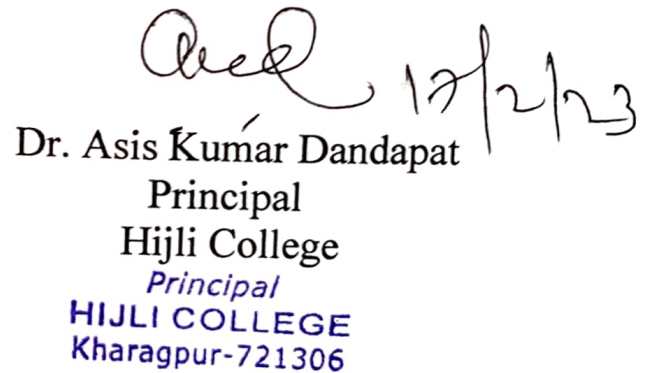 17/2/23
Dr. Asis Kumar Dandapat
Principal
Hijli College
Principal
HIJLI COLLEGE
Kharagpur-721306